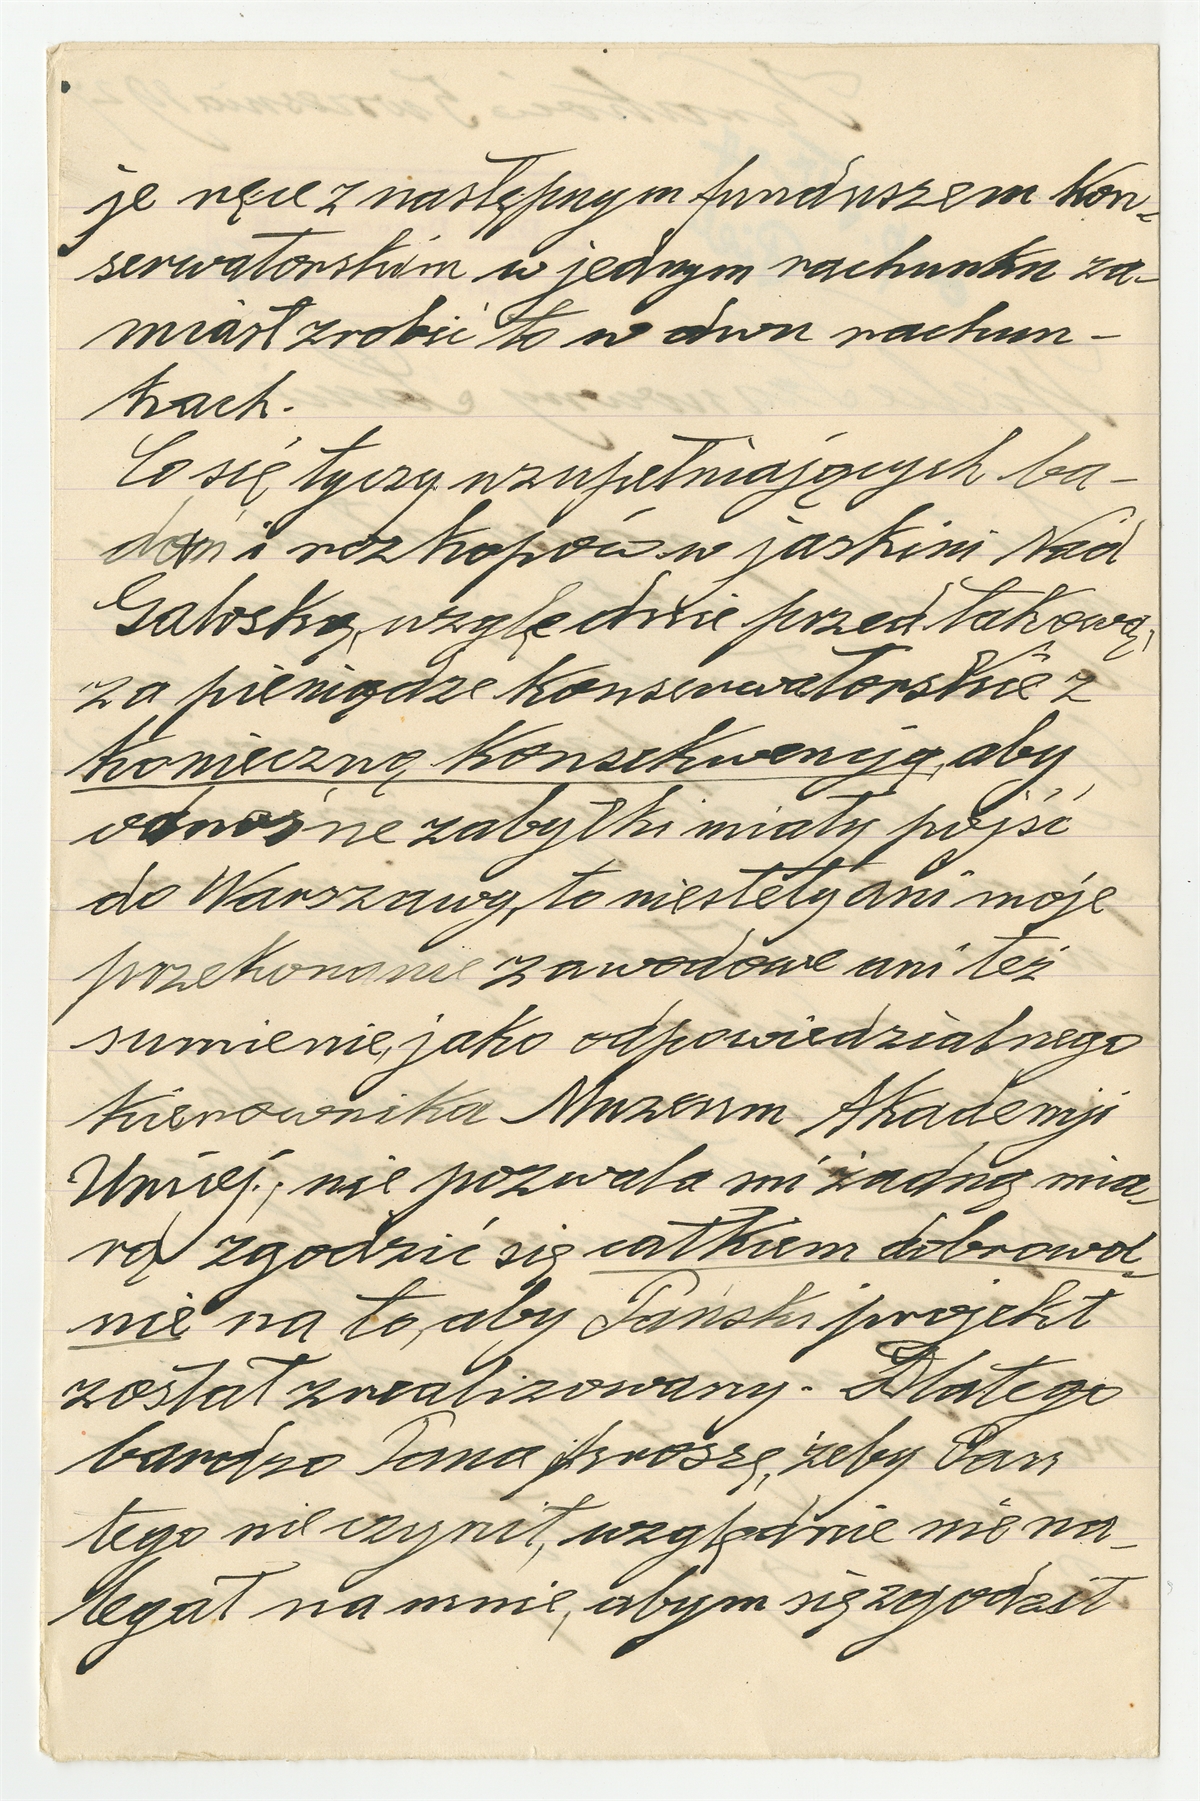 je ręcz z następnym funduszem Kon-
serwatorskim w jednym rachunku za-
miast zrobić to w dwu rachun-
kach.
Co się tyczy uzupełniających ba-
dań i rozkopów w jaskini Nad
Galoską, względnie przed takową,
za pieniądze Konserwatorskie z
konieczną Konsekwencją, aby
odnośne zabytki miały pójść
do Warszawy, to niestety ani moje
przekonanie zawodowe ani też
sumienie, jako odpowiedzialnego
kierownika Muzeum Akademji
Umiej., nie pozwala mi żadną mia-
rą zgodzić się całkiem dobrowol-
nie na to, aby Pański projekt
został zrealizowany. Dlatego
bardzo Pana proszę, żeby Pan
tego nie czynił, względnie nie na-
legał na mnie, abym się zgodził